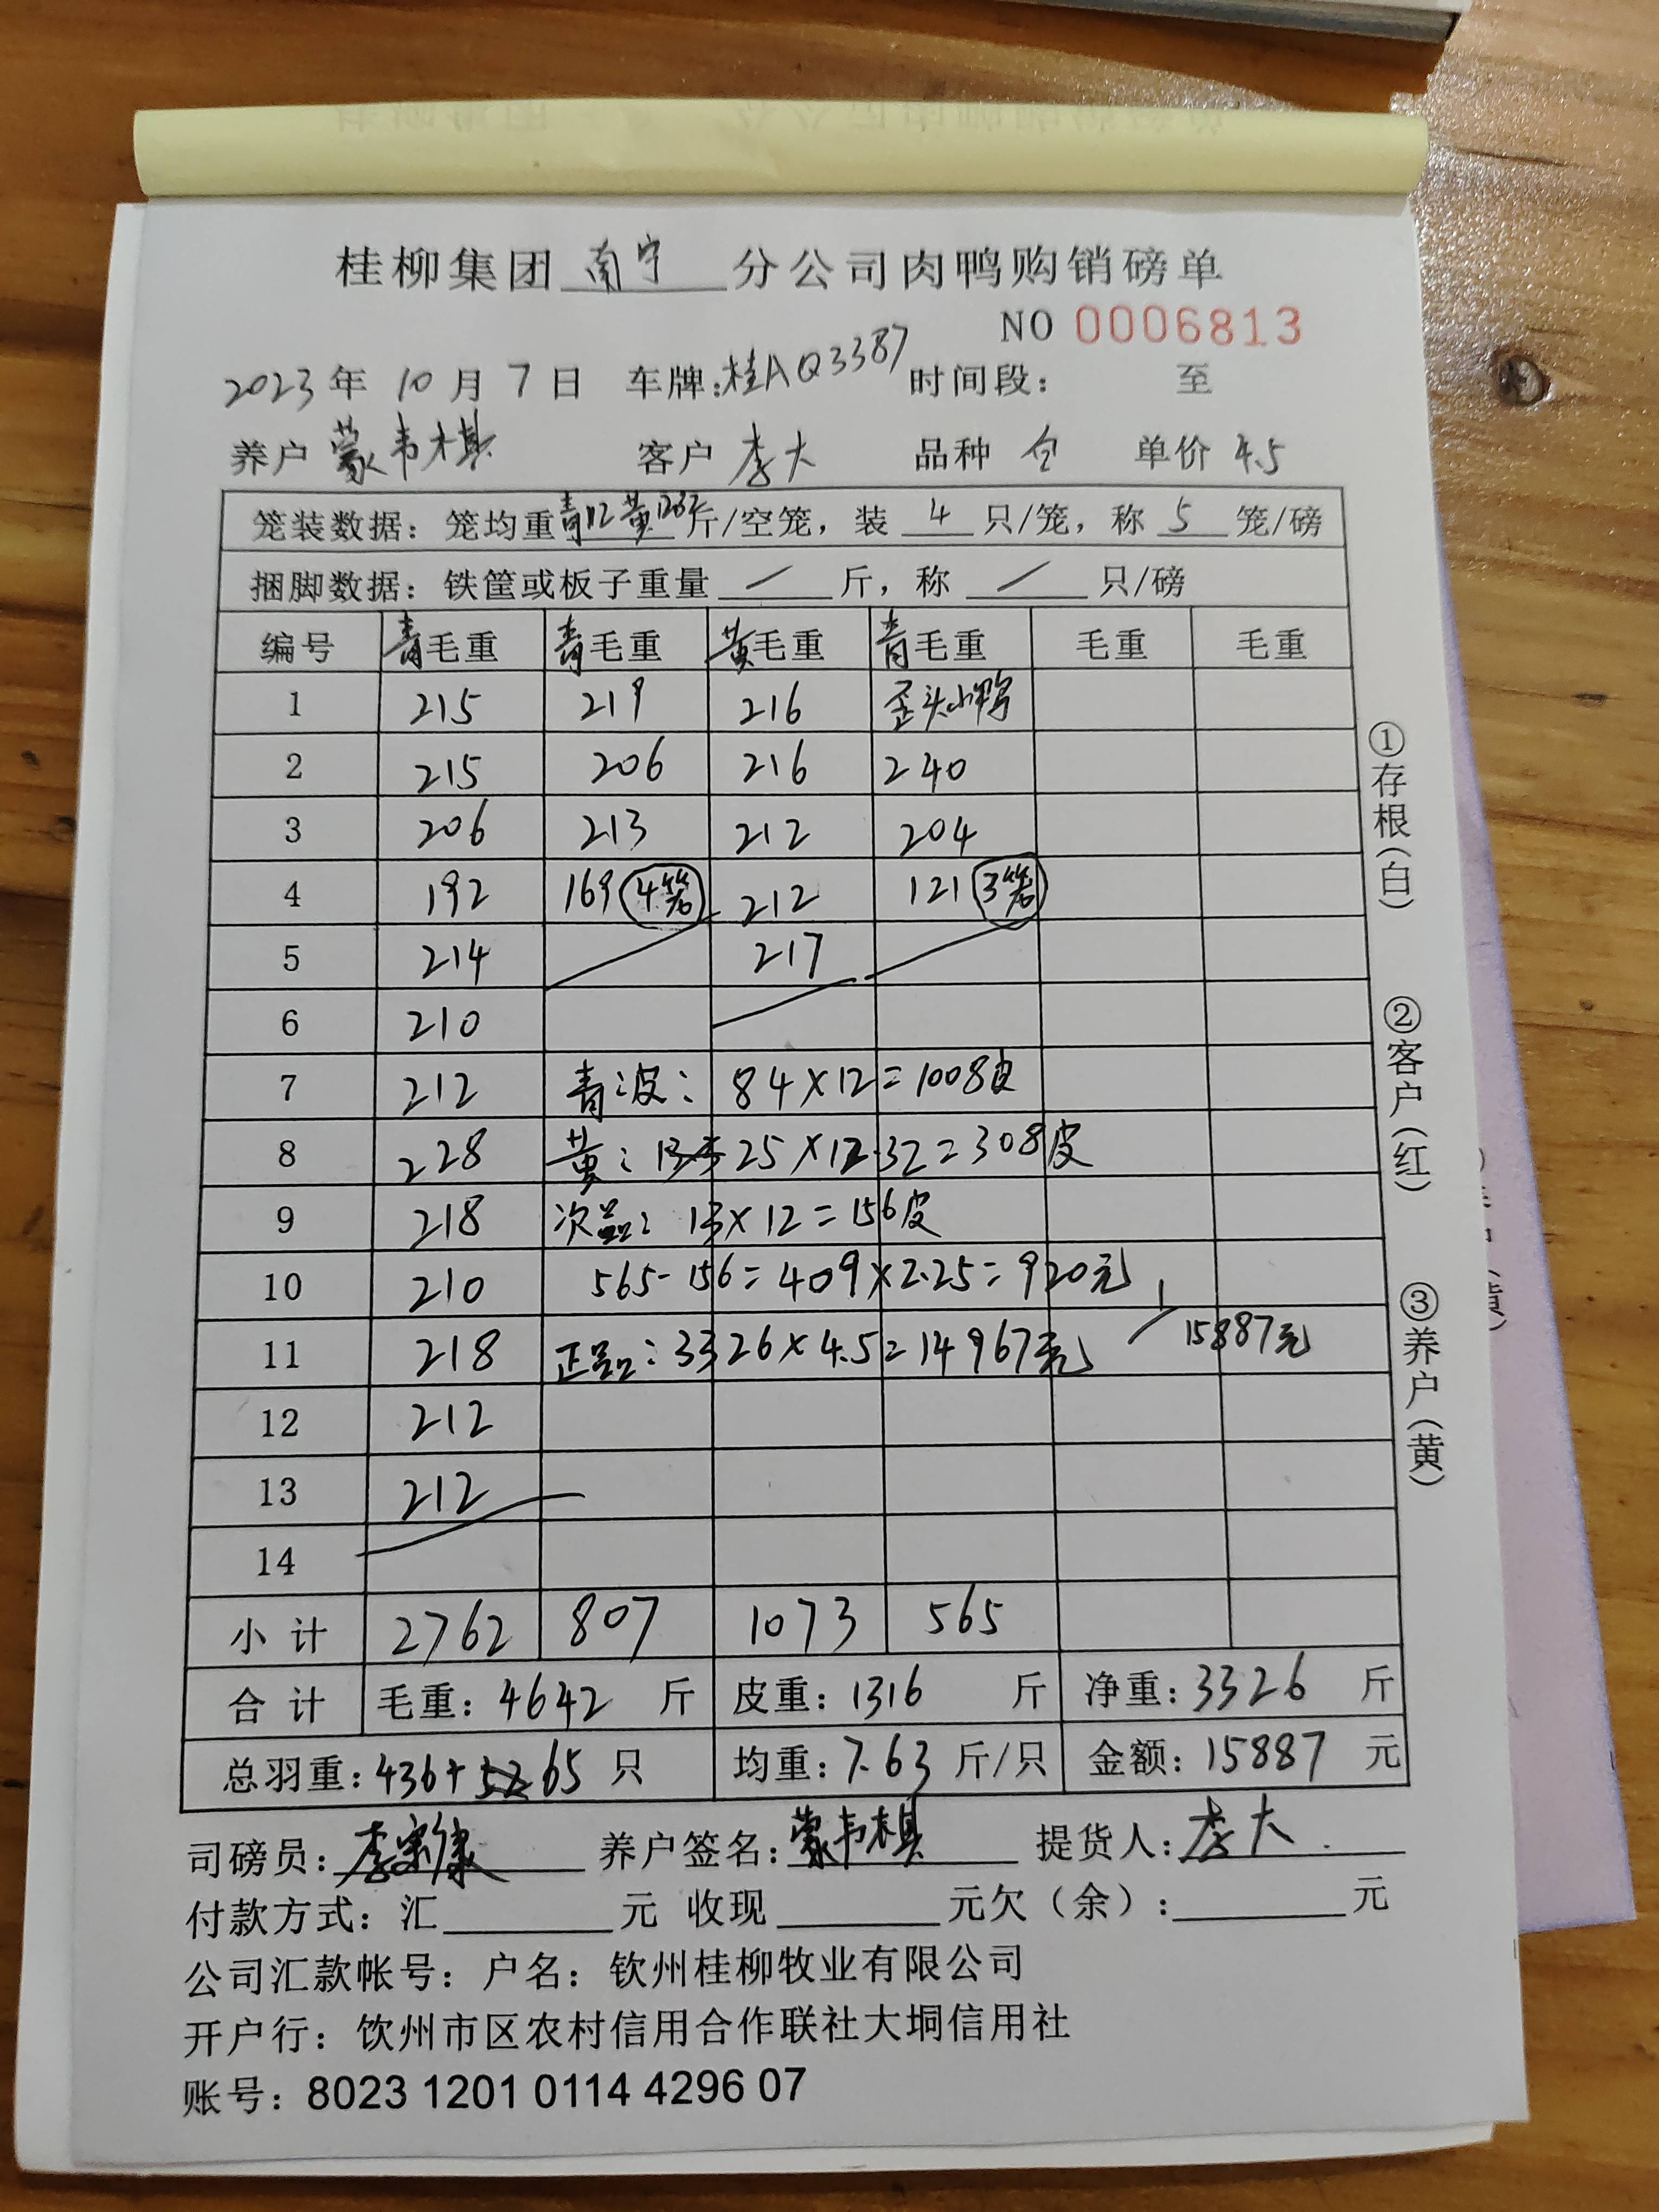 桂柳集团 南宁 分公司肉鸭购销磅单
NO 0006813
2023年 10月 7日 车牌:桂AQ3387 时间段: 至
养户 蒙韦棋 客户 李大 品种 仝 单价 4.5
笼装数据: 笼均重 青12 黄12.32 斤/空笼, 装 4 只/笼, 称 5 笼/磅
捆脚数据: 铁筐或板子重量 / 斤, 称 / 只/磅
编号 青毛重 青毛重 黄毛重 青毛重 毛重 毛重
1 215 219 216 歪头小鸭
2 215 206 216 240
3 206 213 212 204
4 192 169 4笼 212 121 3笼
5 214 217
6 210
7 212 青皮: 84×12=1008皮
8 228 黄: 25×12.32=308皮
9 218 次品: 13×12=156皮
10 210 565-156=409×2.25=920元
11 218 正品: 3326×4.5=14967元 15887元
12 212
13 212
14
小计 2762 807 1073 565
合计 毛重: 4642 斤 皮重: 1316 斤 净重: 3326 斤
总羽重: 436+65 只 均重: 7.63 斤/只 金额: 15887 元
司磅员: 养户签名: 蒙韦棋 提货人: 李大
付款方式: 汇 元 收现 元欠(余): 元
公司汇款帐号: 户名: 钦州桂柳牧业有限公司
开户行: 钦州市区农村信用合作联社大垌信用社
账号: 8023 1201 0114 4296 07
①存根(白)
②客户(红)
③养户(黄)